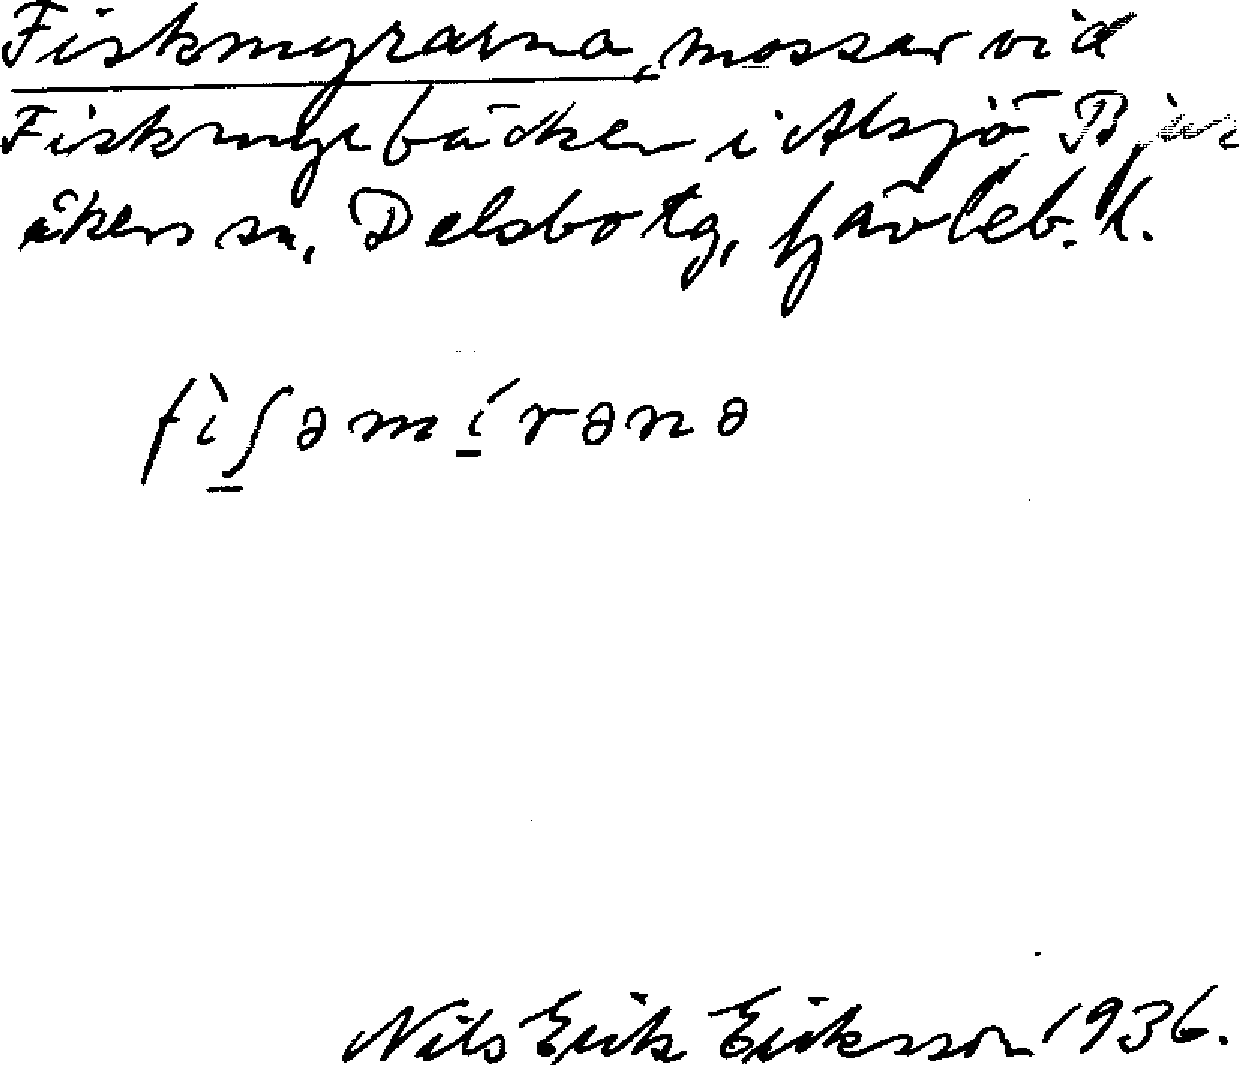 Fiskmyrarna, mossar vid
Fiskmyrbäcken i Alsjö Bjur
åkers sn, Delsbo tg, Gävleb. l.
fìʃəmírəna
Nils Erik Eriksson 1936.